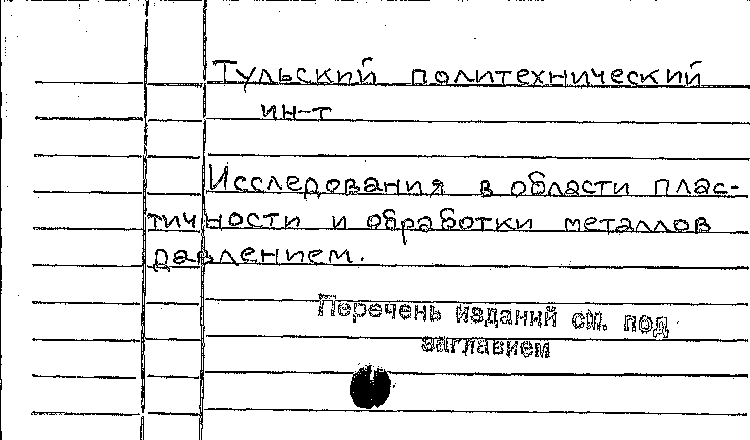 Тульский политехнический
ин-т
Исследования в области плас-
тичности и обработки металлов
давлением.
Перечень изданий см. под
заглавием